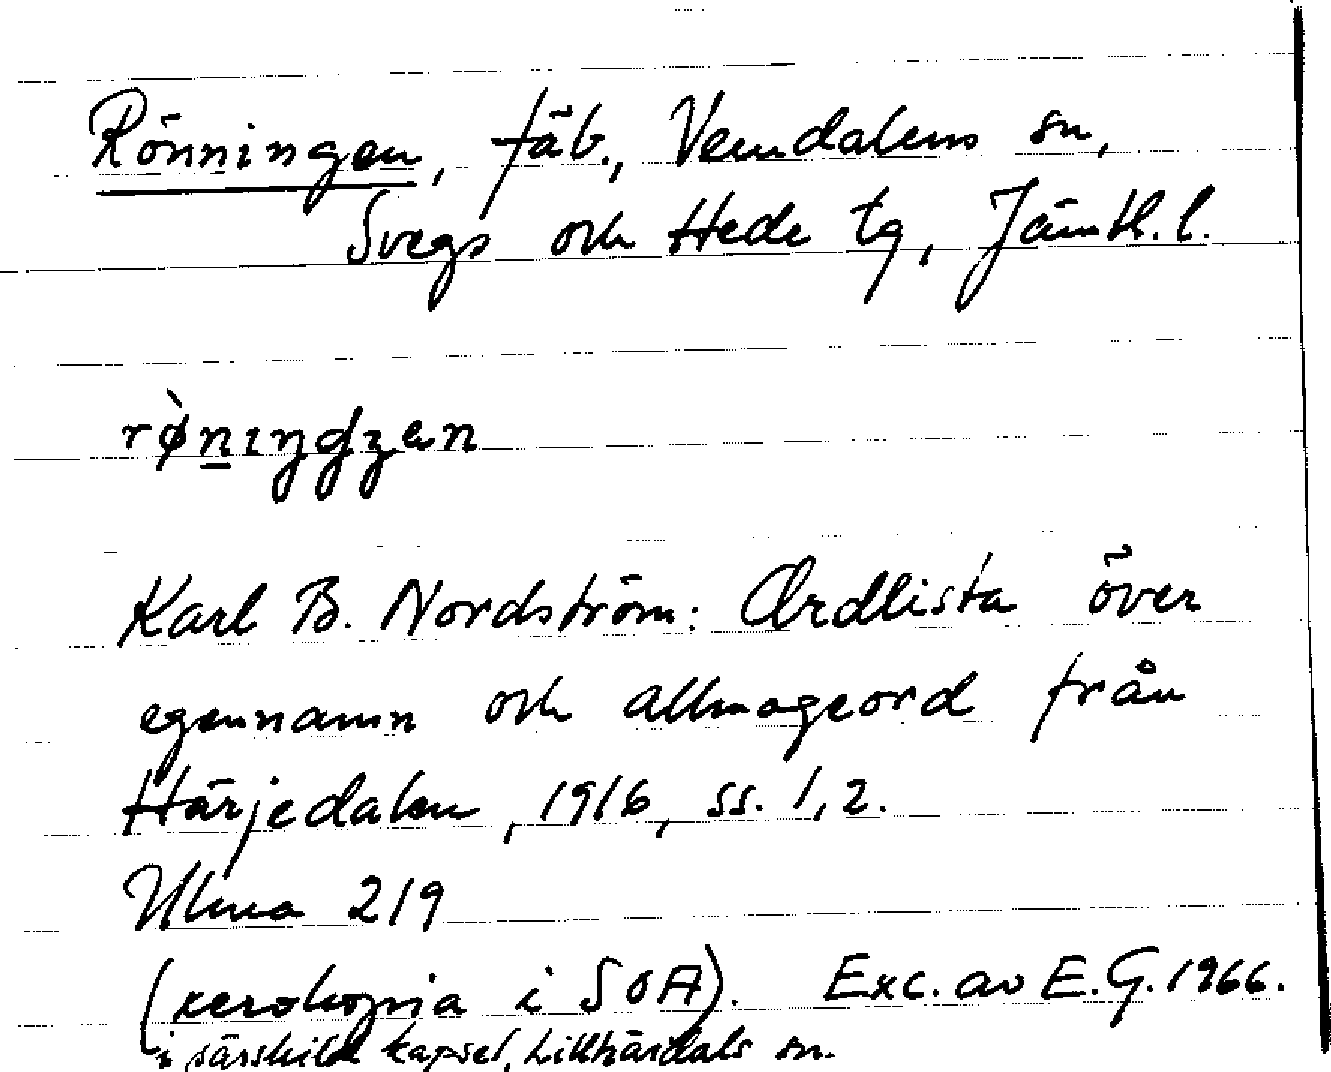 Rönningen, fäb., Vemdalens sn,
Svegs och Hede tg, Jämtl. l.
rø̀n̲ıŋdʒen
Karl B. Nordström: Ordlista över
egennamn och allmogeord från
Härjedalen, 1916, ss. 1, 2.
Ulma 219
(xerokopia i SOA). Exc. av E. G. 1966.
i särskild kapsel, Lillhärdals sn.